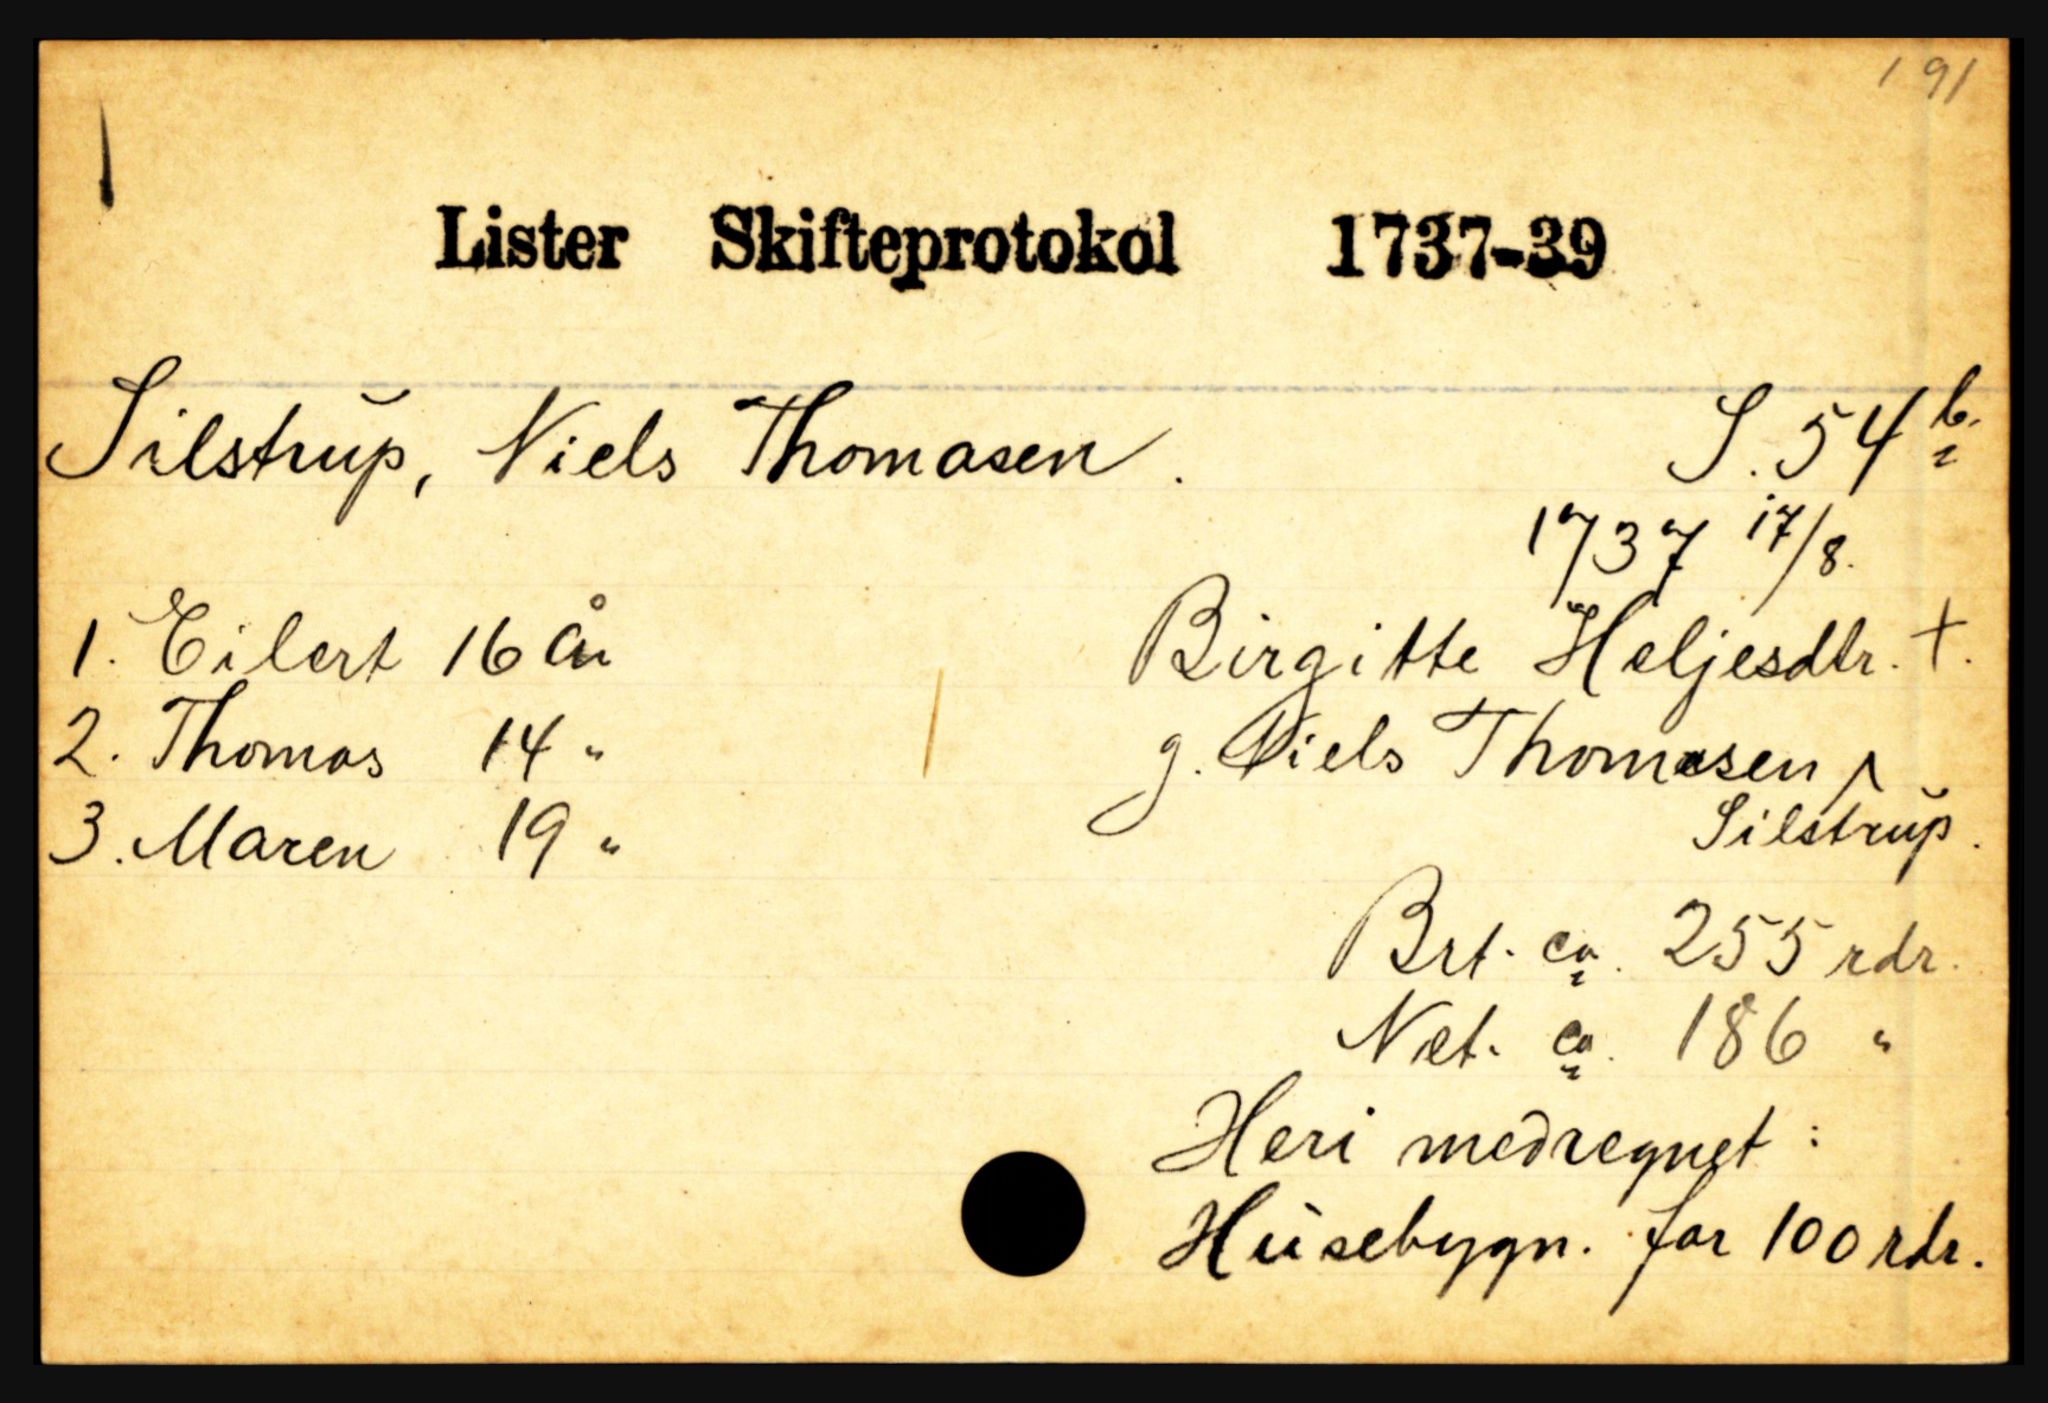 191
Lister Skifteprotokol 1737-39
Silstrup, Niels Thomasen. S. 54 b.
1737 17/8.
Birgitte Heljesdtr. +.
g. Niels Thomasen
Silstrup.
1. Eilert 16 år
2. Thomas 14 "
3. Maren 19 "
Brt. ca. 255 rdr.
Net. ca. 186 "
Heri medregnet:
Husebygn. for 100 rdr.